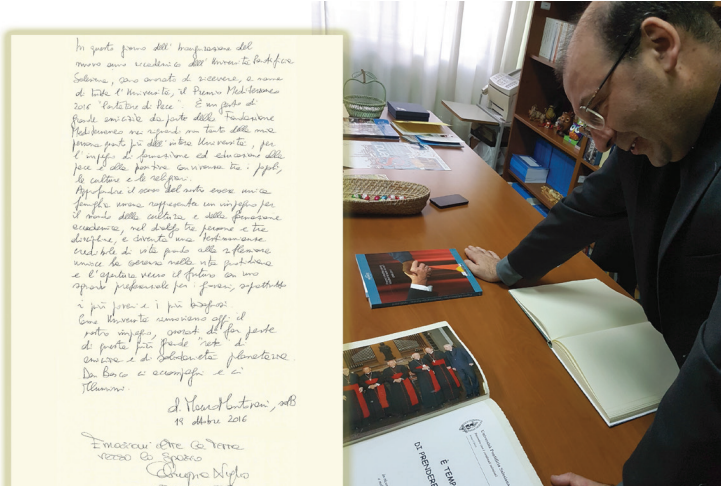 In questo giorno dell'Inaugurazione del
nuovo anno accademico dell'Università Pontificia
Salesiana, sono onorato di ricevere, a nome
di tutta l'Università, il Premio Mediterraneo
2016 "Portatore di Pace". È un gesto di
grande amicizia da parte della Fondazione
Mediterraneo nei riguardi non tanto della mia
persona quanto più dell'intera Università, per
l'impegno di formazione ed educazione alla
pace e alla positiva convivenza tra i popoli,
le culture e le religioni.
Approfondire il senso del nostro essere unica
famiglia umana rappresenta un impegno per
il mondo della cultura e della formazione
accademica, nel dialogo tra persone e tra
discipline, e diventa una testimonianza
credibile di vita quando alla riflessione
unisce la coerenza nella vita quotidiana
e l'apertura verso il futuro con uno
sguardo preferenziale per i giovani, soprattutto
i più poveri e i più bisognosi.
Come Università rinnoviamo oggi il
nostro impegno, onorati di far parte
di questa più grande "rete" di
amicizia e di solidarietà planetaria.
Don Bosco ci accompagni e ci
illumini.
d. Mauro Mantovani, sdB
19 ottobre 2016
oltre la Terra
verso lo Spazio
È TEMP
DI PRENDERE